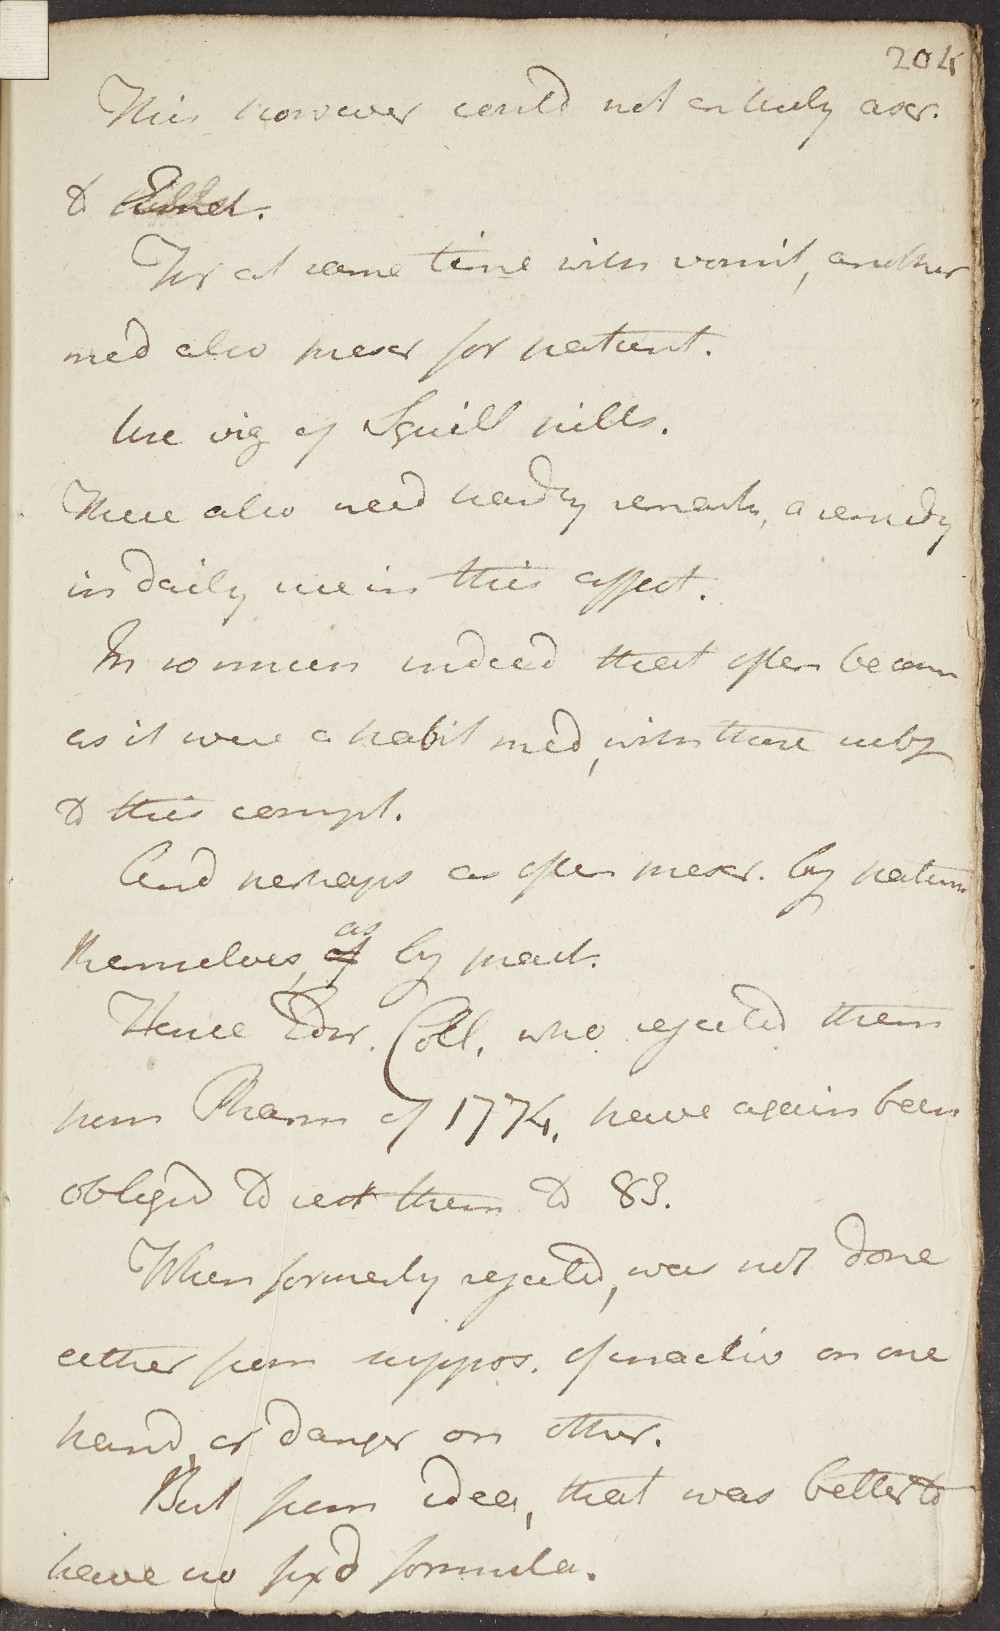 204
This however could not entirely ascr.
to Emet.
For at same time with vomit, another
med also prescr for patient.
Use viz of Squill pills.
These also need hardly remark, a remedy
in daily use in this affect.
In women indeed that often become
as it were a habit med, with those subj
to this compl.
And perhaps as often prescr. by patients
themselves, as by pract.
Hence Edinr. Coll. who rejected them
from Pharm of 1774, have again been
obliged to rest them to 83.
When formerly rejected, was not done
either from suppos. of inactiv on one
hand, or danger on other.
But from idea, that was better to
have no fixd formula.